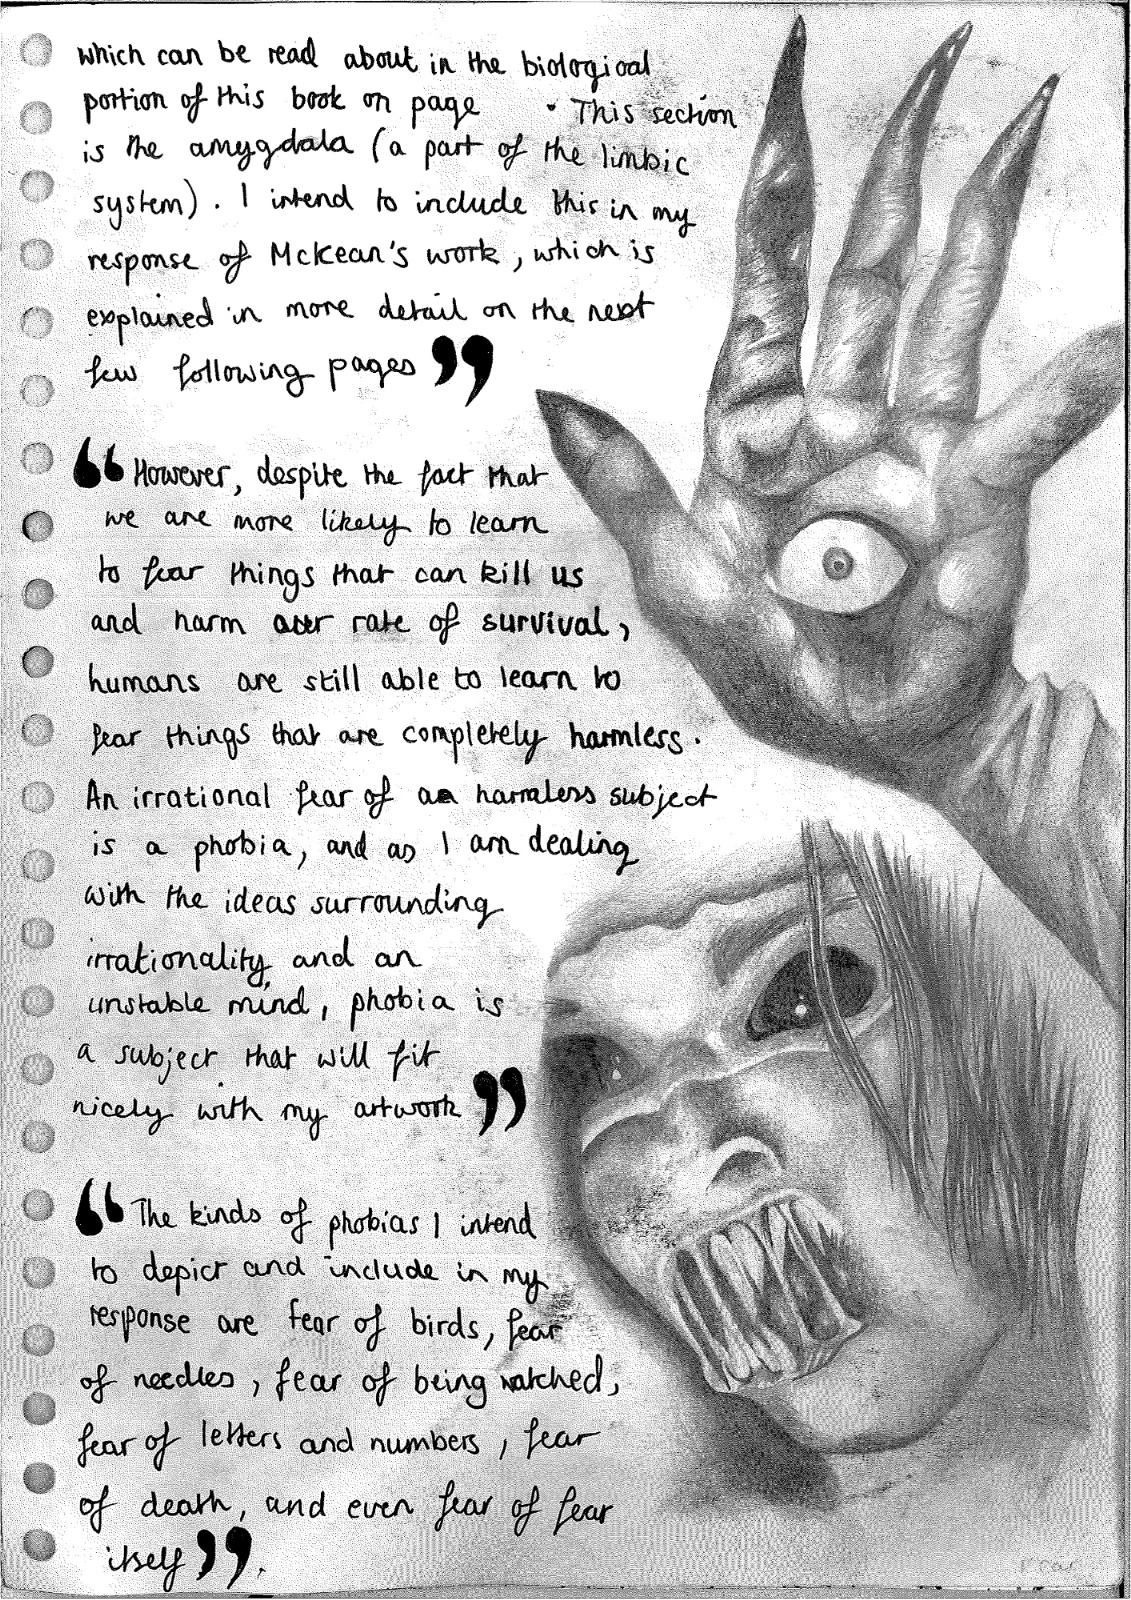 which can be read about in the biological
portion of this book on page . This section
is the amygdala (a part of the limbic
system). I intend to include this in my
response of McKean's work, which is
explained in more detail on the next
few following pages ”
“ However, despite the fact that
we are more likely to learn
to fear things that can kill us
and harm our rate of survival,
humans are still able to learn to
fear things that are completely harmless.
An irrational fear of a harmless subject
is a phobia, and as I am dealing
with the ideas surrounding
irrationality and an
unstable mind, phobia is
a subject that will fit
nicely with my artwork ”
“ The kinds of phobias I intend
to depict and include in my
response are fear of birds, fear
of needles, fear of being watched,
fear of letters and numbers, fear
of death, and even fear of fear
itself ”.